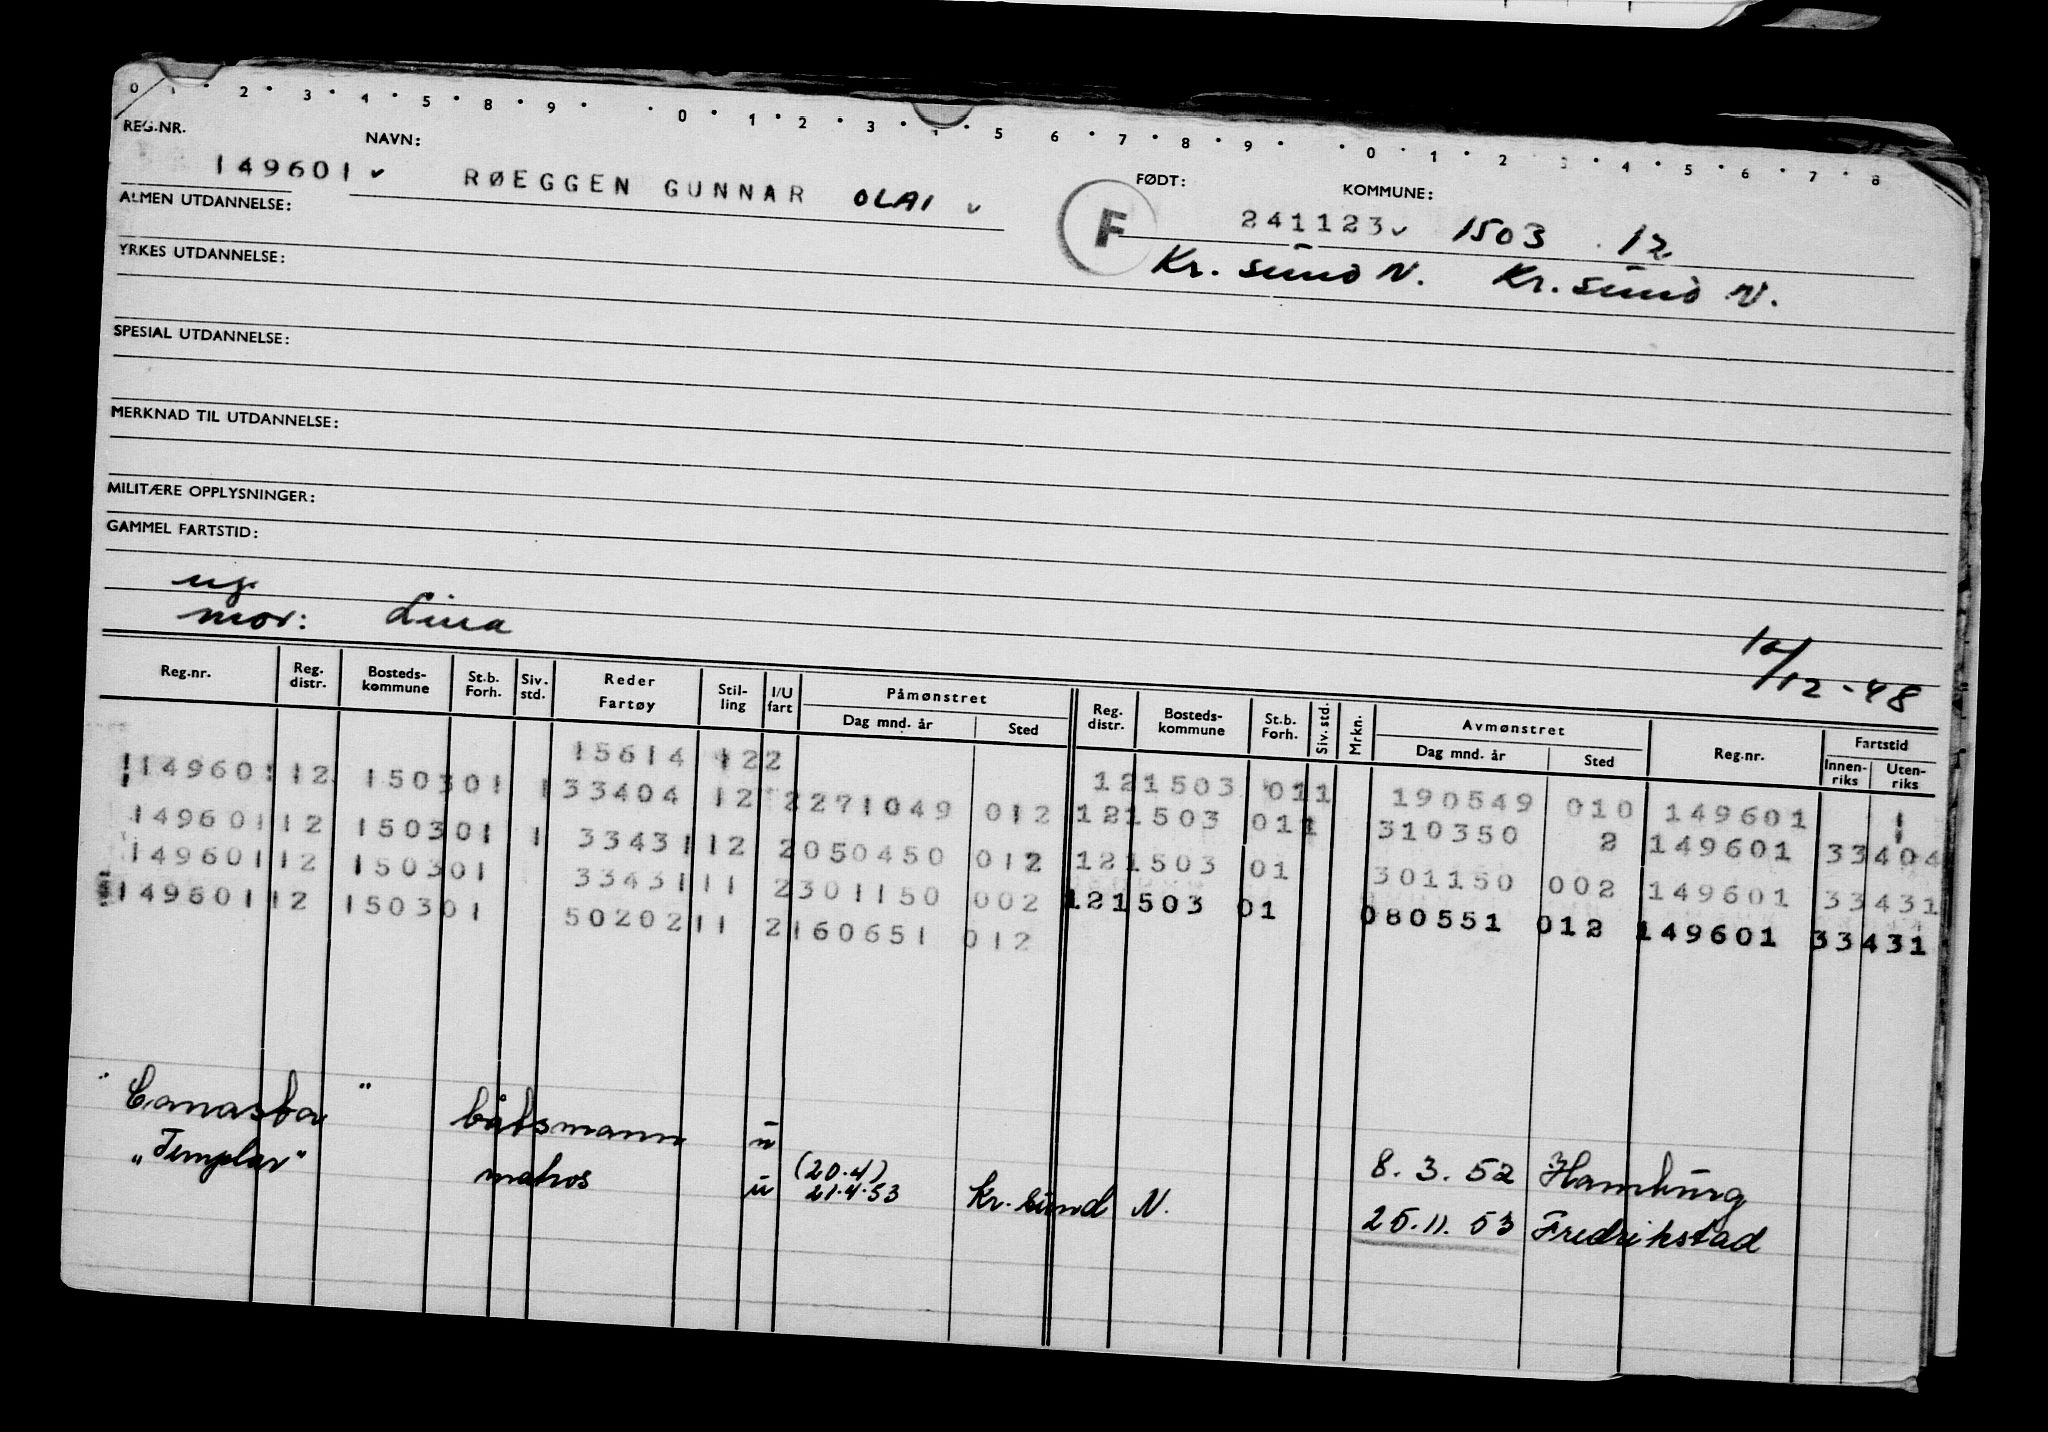 0 1 · 2 · 3 · 4 · 5 · 8 · 9 · · 0 · 1 · 2 · 3 · 4 · 5 6 · 7 · 8 · 9 · · 0 · 1 · 2 · 3 · 4 · 5 · 6 · 7 · 8
REG.NR. NAVN: FØDT: KOMMUNE:
149601 v RØEGGEN GUNNAR OLAI v F 241123 v 1503 12
ALMEN UTDANNELSE:
Kr. sund N. Kr. sund N.
YRKES UTDANNELSE:
SPESIAL UTDANNELSE:
MERKNAD TIL UTDANNELSE:
MILITÆRE OPPLYSNINGER:
GAMMEL FARTSTID:
ug.
mor: Lina
12-48
Reg.nr. Reg. distr. Bosteds-kommune St.b. Forh. Siv. std. Reder Fartøy Stil-ling I/U fart Påmønstret Dag mnd. år Sted Reg. distr. Bosteds-kommune St.b. Forh. Siv. std. Mrkn. Avmønstret Dag mnd. år Sted Reg.nr. Fartstid Innen-riks Uten-riks
15614 122 121503 011 190549 010 149601
149601 12 150301 1 33404 12 2 271049 012 121503 011 310350 2 149601 33404
149601 12 150301 1 33431 12 2 050450 012 121503 01 301150 002 149601 33431
149601 12 150301 33431 11 2 301150 002 121503 01 080551 012 149601 33431
149601 12 150301 50202 11 2 160651 012
" " båtsmann u 8.3.52 Hamburg
„Templar" matros u (20.4) 21.4.53 Kr. sund N. 25.11.53 Fredrikstad